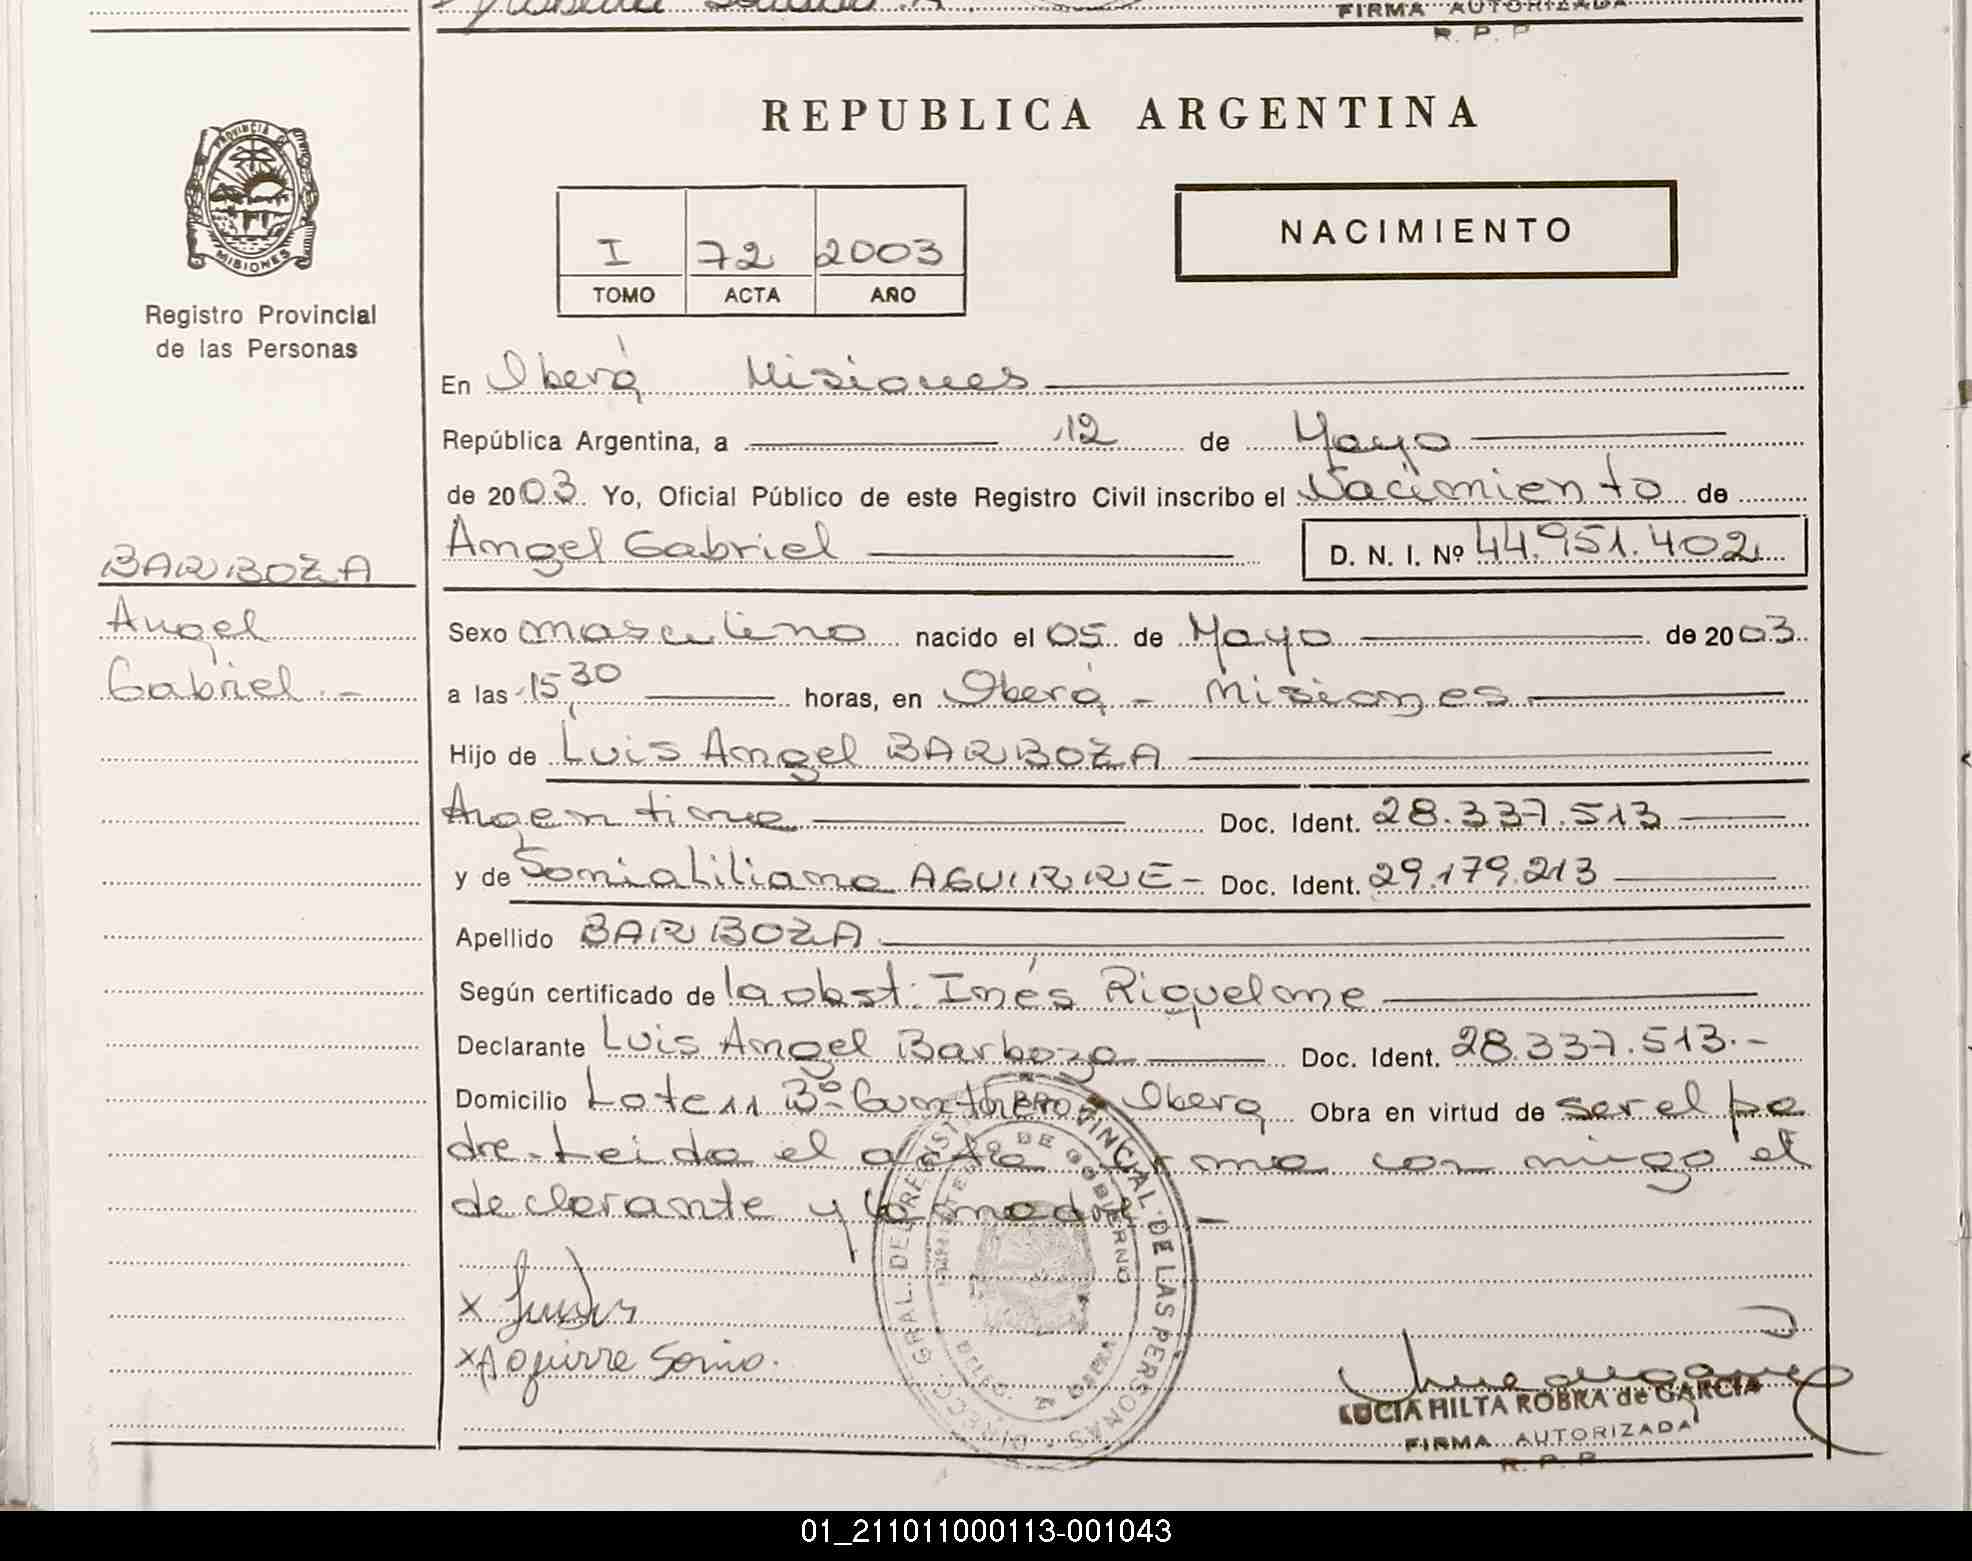 FIRMA AUTORIZADA
R. P. P
REPUBLICA ARGENTINA
PROVINCIA DE
MISIONES
Registro Provincial
de las Personas
I 72 2003
TOMO ACTA AÑO
NACIMIENTO
En Oberá Misiones
República Argentina, a 12 de Mayo
de 2003. Yo, Oficial Público de este Registro Civil inscribo el Nacimiento de
Angel Gabriel D. N. I. Nº 44.951.402
BARBOZA
Angel
Gabriel.-
Sexo masculino nacido el 05 de Mayo de 2003
a las 15,30 horas, en Oberá - Misiones
Hijo de Luis Angel BARBOZA
Argentino Doc. Ident. 28.337.513
y de Sonia Liliana AGUIRRE - Doc. Ident. 29.179.213
Apellido BARBOZA
Según certificado de la obst. Inés Riquelme
Declarante Luis Angel Barboza Doc. Ident. 28.337.513.-
Domicilio Lote 11 Bº Oberá Obra en virtud de ser el pa
dre. Leida el acta firma con migo el
declarante y la madre. -
DIRECC. GRAL. DEL REGISTRO PROVINCIAL DE LAS PERSONAS
MINISTERIO DE GOBIERNO
OBERA
x
x Aguirre Sonia.
LUCIA HILTA ROBRA de GARCIA
FIRMA AUTORIZADA
R. P. P
01_211011000113-001043